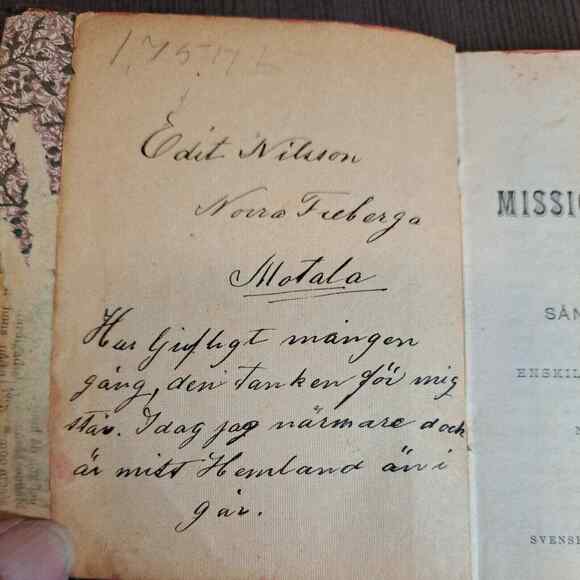 1,75
Edit Nilsson
Norra Freberga
Motala
Hur ljufligt mången
gång, den tanken för mig
står. I dag jag närmare dock
är mitt Hemland än i
går.
MISSIO
SÅN
ENSKIL
SVENSK